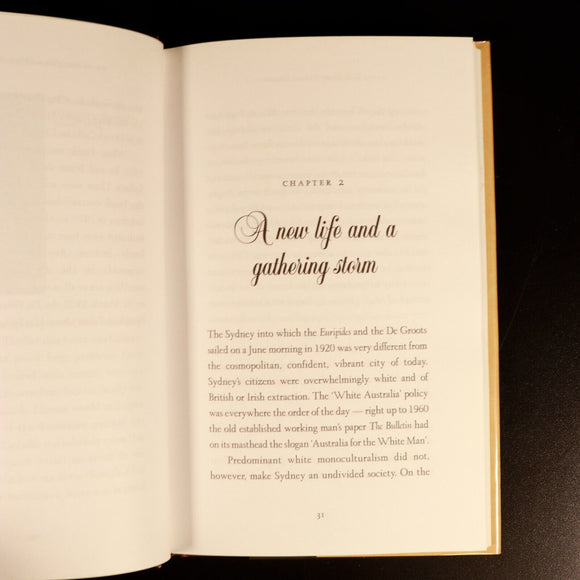 CHAPTER 2
A new life and a
gathering storm
The Sydney into which the Euripides and the De Groots
sailed on a June morning in 1920 was very different from
the cosmopolitan, confident, vibrant city of today.
Sydney's citizens were overwhelmingly white and of
British or Irish extraction. The 'White Australia' policy
was everywhere the order of the day — right up to 1960
the old established working man's paper The Bulletin had
on its masthead the slogan 'Australia for the White Man'.
Predominant white monoculturalism did not,
however, make Sydney an undivided society. On the
31